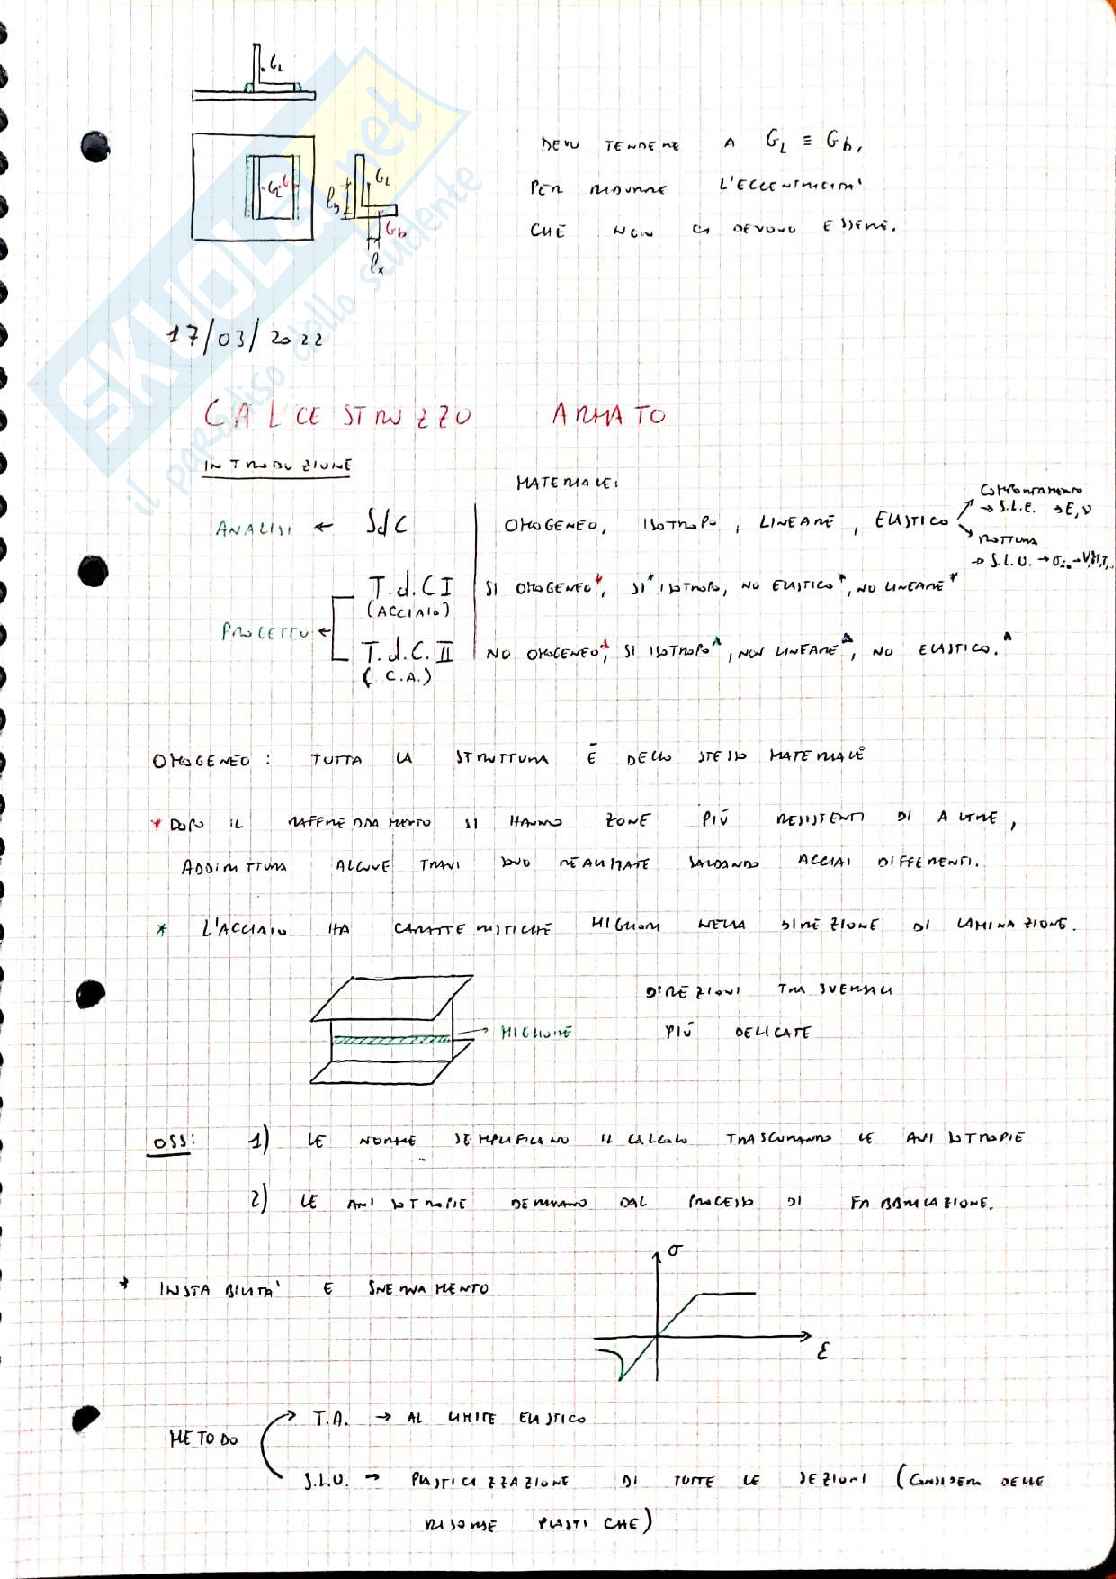 G_L
DEVO TENDERE A G_L ≡ G_b,
G_L G
G_L
PER RIDURRE L'ECCENTRICITA'
CHE NON CI DEVONO ESSERE.
G_b
l_x
17/03/2022
CALCESTRUZZO ARMATO
INTRODUZIONE
MATERIALE:
ANALISI ← SdC
OMOGENEO, ISOTROPO, LINEARE, ELASTICO
COMPORTAMENTO
→ S.L.E. → E, ν
ROTTURA
→ S.L.U. →
T.d.C I
SI OMOGENEO*, SI* ISOTROPO, NO ELASTICO*, NO LINEARE*
(ACCIAIO)
PROGETTO ←
T.d.C. II
NO OMOGENEO, SI ISOTROPO, NON LINEARE, NO ELASTICO.
( C.A.)
OMOGENEO: TUTTA LA STRUTTURA È DELLO STESSO MATERIALE
* DOPO IL RAFFREDDAMENTO SI HANNO ZONE PIÙ RESISTENTI DI ALTRE,
ADDIRITTURA ALCUNE TRAVI SONO REALIZZATE SALDANDO ACCIAI DIFFERENTI.
* L'ACCIAIO HA CARATTERISTICHE MIGLIORI NELLA DIREZIONE DI LAMINAZIONE.
DIREZIONI TRASVERSALI
→ MIGLIORE
PIÙ DELICATE
OSS: 1) LE NORME SEMPLIFICANO IL CALCOLO TRASCURANDO LE ANISOTROPIE
2) LE ANISOTROPIE DERIVANO DAL PROCESSO DI FABBRICAZIONE.
σ
* INSTABILITA' E SNERVAMENTO
ε
METODO
T.A. → AL LIMITE ELASTICO
S.L.U. → PLASTICIZZAZIONE DI TUTTE LE SEZIONI (CONSIDERA DELLE
RISORSE PLASTICHE)
SKUOLA.net
il paradiso dello studente